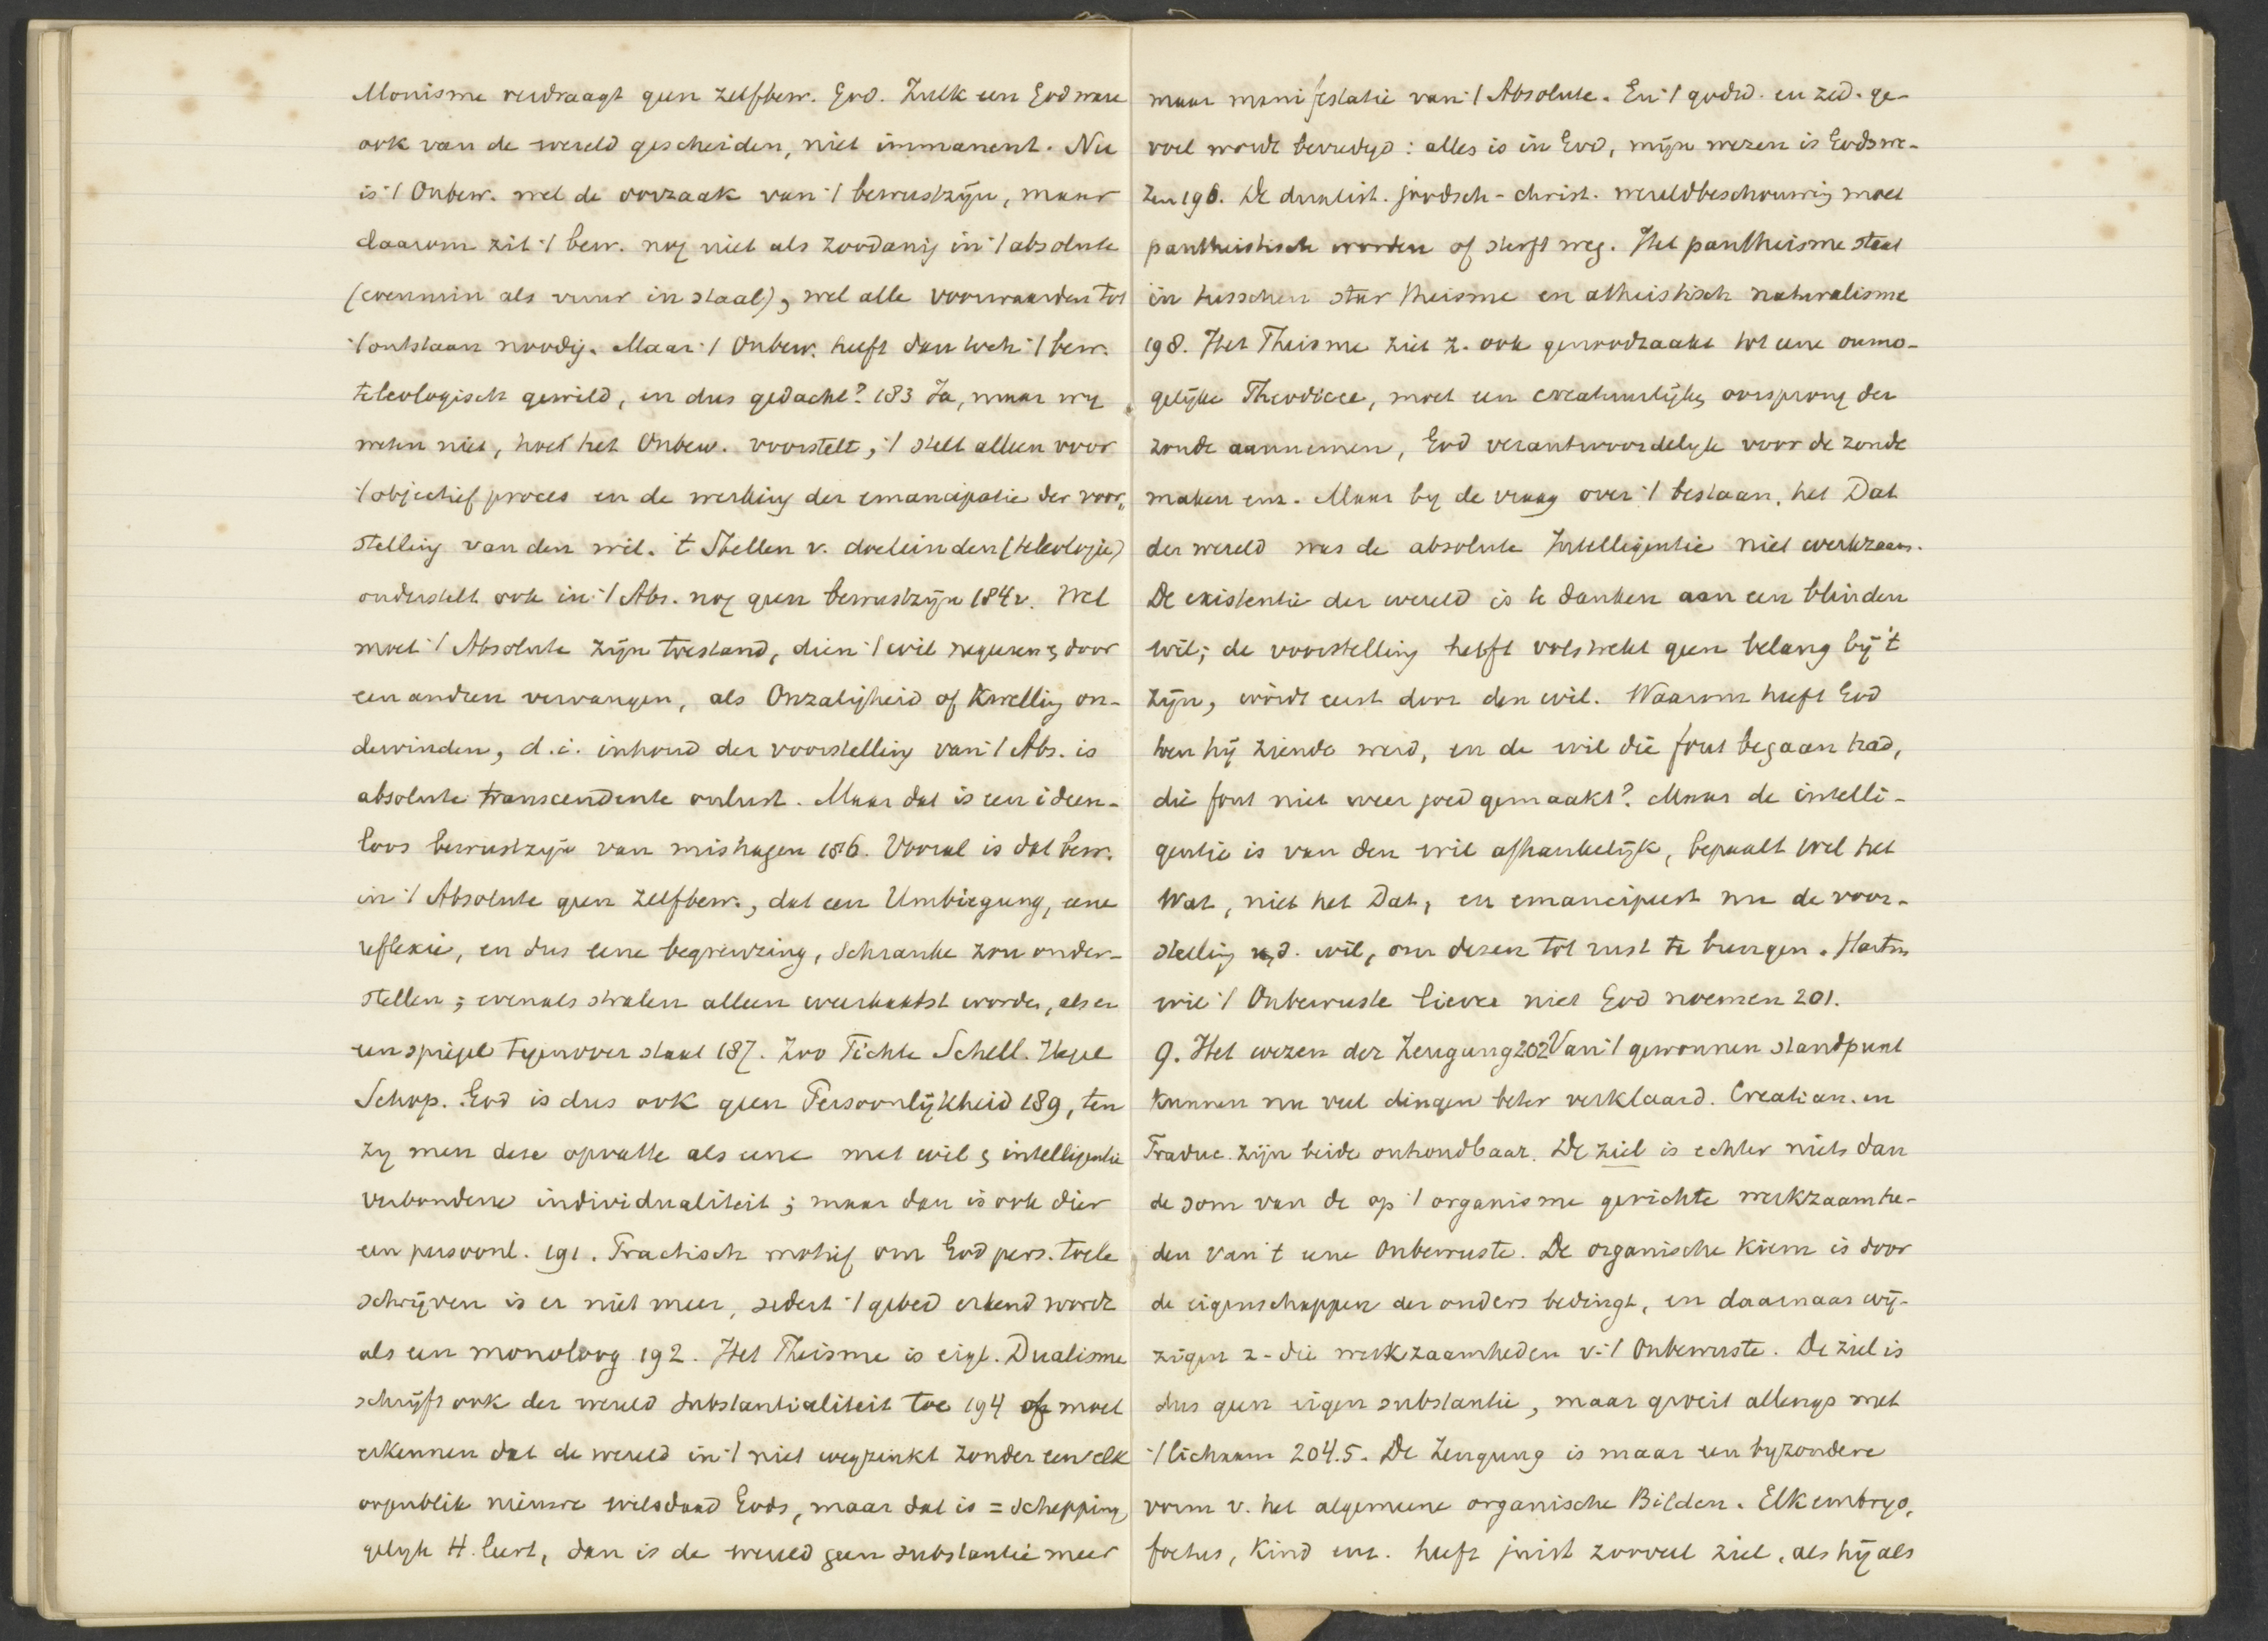 Monisme verdraagt geen zelfbew. God. Zulk een God ware
ook van de wereld gescheiden, niet immanent. Nu
is 't Onbew. wel de oorzaak van 't bewustzijn, maar
daarom zit 't bew. nog niet als zoodanig in 't absolute
(evenmin als vuur in staal), wel alle voorwaarden tot
't ontstaan noodig. Maar 't Onbew. heeft dan toch 't bew.
teleologisch gewild, en dus gedacht? 183 Ja, maar wy
weten niet, hoe het Onbew. voorstelt, 't stelt alleen voor
't objectief proces en de werking der emancipatie der voor„
stelling van den wil. 't Stellen v. doeleinden (teleologie)
onderstelt ook in 't Abs. nog geen bewustzijn 184v. Wel
moet 't Absolute zijn toestand, dien 't wil negeren & door
een andren vervangen, als Onzaligheid of Kwelling on-
dervinden, d.i. inhoud der voorstelling van 't Abs. is
absolute transcendente onlust. Maar dat is een ideen-
loos bewustzijn van mishagen 186. Vooral is dat bew.
in 't Absolute geen zelfbew., dat een Umbiegung, eene
reflexie, en dus eene begrenzing, Schranke zou onder-
stellen; evenals stralen alleen weerkaatst worden, als er
een spiegel tegenover staat 187. Zoo Fichte Schell. Hegel
Schop. God is dus ook geen Persoonlijkheid 189, ten
zy men deze opvatte als eene met wil & intelligentie
verbondene individualiteit; maar dan is ook dier
een persoonl. 191. Practisch motief om God pers. toe te
schrijven is er niet meer, sedert 't gebed erkend wordt
als een monoloog 192. Het Theisme is eigl. Dualisme
schrijft ook der wereld substantialiteit toe 194 of moet
erkennen dat de wereld in 't niet wegzinkt zonder een elk
oogenblik nieuwe wilsdaad Gods, maar dat is = schepping
gelyk H. leert, dan is de wereld geen substantie meer
maar manifestatie van 't Absolute. En 't godsd. en zed. ge-
voel wordt bevredigd: alles is in God, mijn wezen is Godswe-
zen 196. De dualist. joodsch-christ. wereldbeschouwing moet
pantheistisch worden of sterft weg. Het pantheisme staat
in tusschen star theisme en atheistisch naturalisme
198. Het Theisme ziet z. ook genoodzaakt tot eene onmo-
gelijke Theodicee, moet een creatuurlijke, oorsprong der
zonde aannemen, God verantwoordelyk voor de zonde
maken enz. Maar by de vraag over 't bestaan, het Dat
der wereld was de absolute Intelligentie niet werkzaam.
De existentie der wereld is te danken aan een blinden
wil; de voorstelling heeft volstrekt geen belang bij 't
zijn, wordt eerst door den wil. Waarom heeft God
toen hij ziende werd, en de wil die fout begaan had,
die fout niet weer goed gemaakt? Maar de intelli-
gentie is van den wil afhankelijk, bepaalt wel het
Wat, niet het Dat, en emancipeert nu de voor-
stelling v. d. wil, om dezen tot rust te brengen. Hartm
wil 't Onbewuste liever niet God noemen 201.
9. Het wezen der Zeugung 202 Van 't gewonnen standpunt
kunnen nu veel dingen beter verklaard. Creatian. en
Traduc. zijn beide onhoudbaar. De ziel is echter niets dan
de som van de op 't organisme gerichte werkzaamhe-
den van 't eene Onbewuste. De organische Kiem is door
de eigenschappen der ouders bedingt, en daarnaar wij-
zigen z. die werkzaamheden v. 't Onbewuste. De ziel is
dus geen eigen substantie, maar groeit allengs met
't lichaam 204.5. De Zeugung is maar een byzondere
vorm v. het algemeene organische Bilden. Elk embryo,
foetus, Kind enz. heeft juist zooveel ziel, als hij als